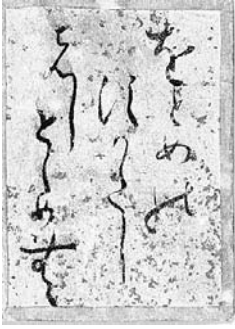 をとめの
すかたし
はしとゝめむ